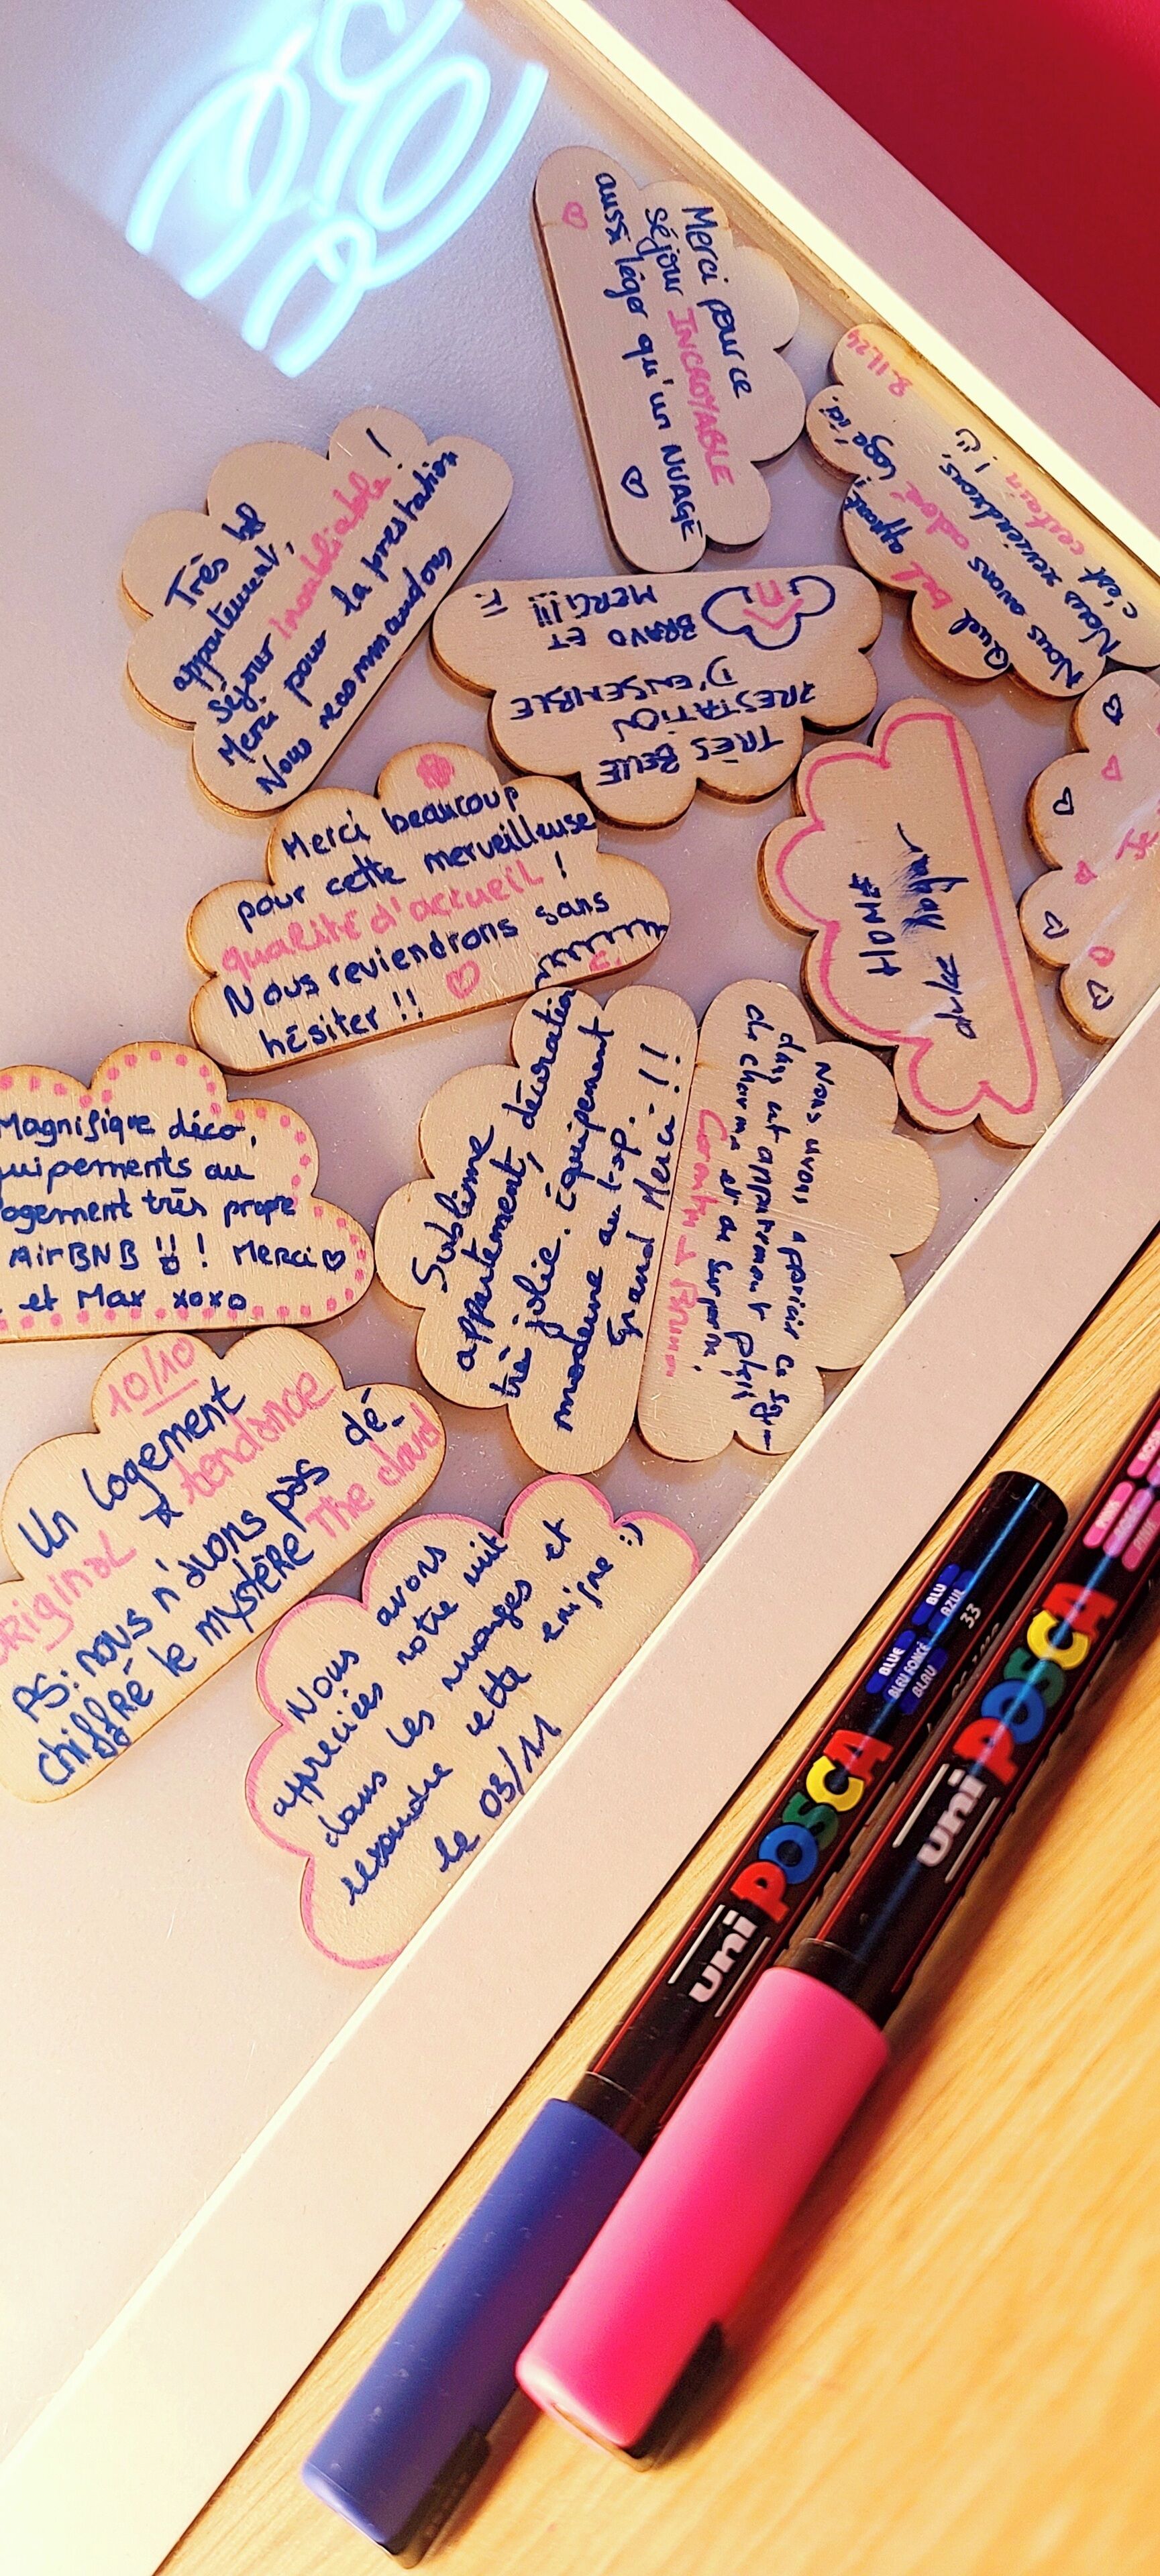 Merci pour ce
séjour INCROYABLE
aussi léger qu'un NUAGE
8.11.24
Quel bel appart !
Nous avons adoré loger ici.
Nous reviendrons,
c'est certain !
Très bel
appartement,
séjour inoubliable !
Merci pour la prestation
Nous recommandons
TRÈS BELLE
PRESTATION
D'ENSEMBLE
BRAVO ET
MERCI !!!
Merci beaucoup
pour cette merveilleuse
qualité d'accueil !
Nous reviendrons sans
hésiter !!
Magnifique déco,
uipements au
ogement très propre
AirBNB !! ! Merci
et Max xoxo
Sublime
appartement, décoration
très jolie. Équipement
moderne au top.
Grand Merci !!!
Nous avons apprécié ce
dans cet appartement plein
de charme et
10/10
Un logement
original & tendance
PS: nous n'avons pas dé-
chiffré le mystère The cloud
Nous avons
appréciés notre nuit
dans les nuages et
resoudre cette enigme :)
le 03/11
uni POSCA
BLUE
BLEU FONCÉ
BLAU
BLU
AZUL
33
uni POSCA